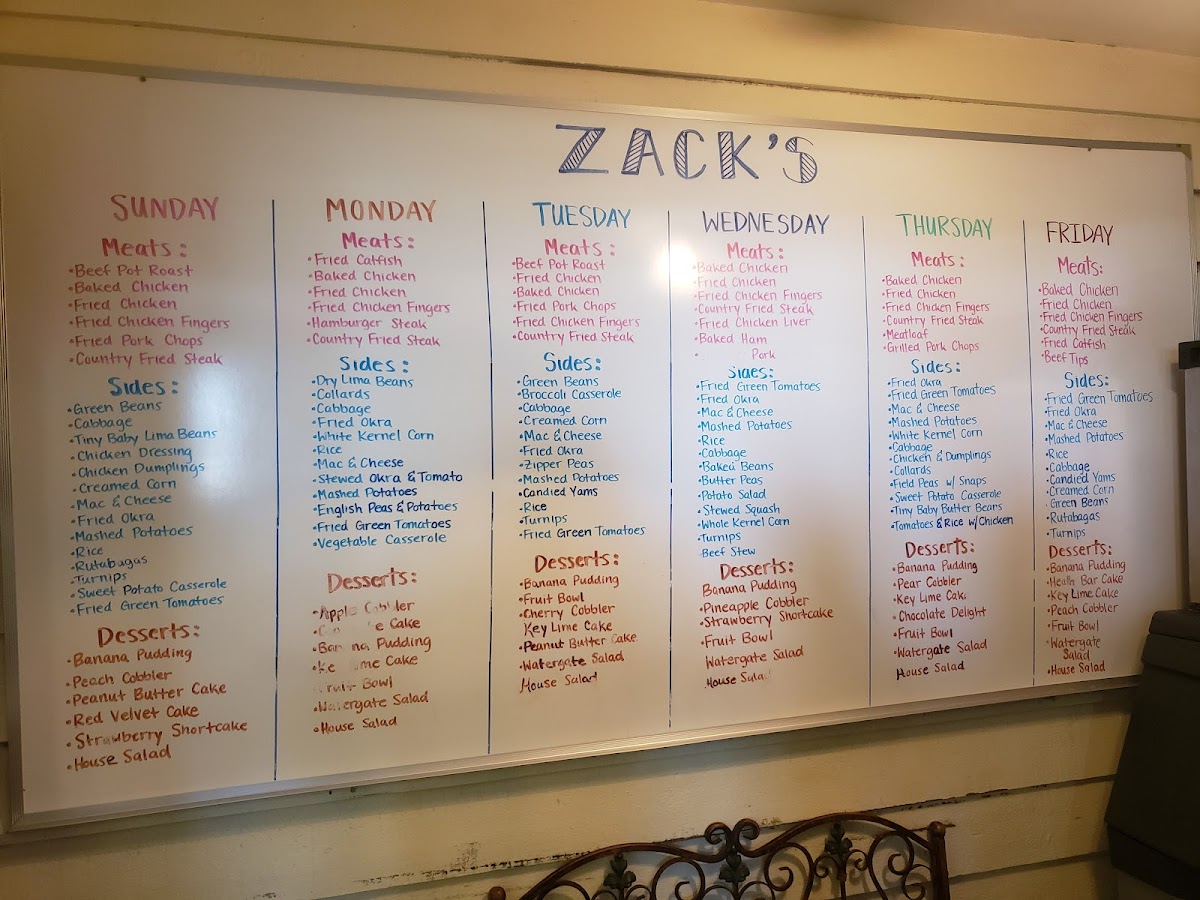 ZACK'S
SUNDAY
Meats:
•Beef Pot Roast
•Baked Chicken
•Fried Chicken
•Fried Chicken Fingers
•Fried Pork Chops
•Country Fried Steak
Sides:
•Green Beans
•Cabbage
•Tiny Baby Lima Beans
•Chicken Dressing
•Chicken Dumplings
•Creamed Corn
•Mac & Cheese
•Fried Okra
•Mashed Potatoes
•Rice
•Rutabagas
•Turnips
•Sweet Potato Casserole
•Fried Green Tomatoes
Desserts:
•Banana Pudding
•Peach Cobbler
•Peanut Butter Cake
•Red Velvet Cake
•Strawberry Shortcake
•House Salad
MONDAY
Meats:
•Fried Catfish
•Baked Chicken
•Fried Chicken
•Fried Chicken Fingers
•Hamburger Steak
•Country Fried Steak
Sides:
•Dry Lima Beans
•Collards
•Cabbage
•Fried Okra
•White Kernel Corn
•Rice
•Mac & Cheese
•Stewed Okra & Tomato
•Mashed Potatoes
•English Peas & Potatoes
•Fried Green Tomatoes
•Vegetable Casserole
Desserts:
•Apple Cobbler
Cake
•Banana Pudding
Cake
Fruit Bowl
•Watergate Salad
•House Salad
TUESDAY
Meats:
•Beef Pot Roast
•Fried Chicken
•Baked Chicken
•Fried Pork Chops
•Fried Chicken Fingers
•Country Fried Steak
Sides:
•Green Beans
•Broccoli Casserole
•Cabbage
•Creamed Corn
•Mac & Cheese
•Fried Okra
•Zipper Peas
•Mashed Potatoes
•Candied Yams
•Rice
•Turnips
•Fried Green Tomatoes
Desserts:
•Banana Pudding
•Fruit Bowl
•Cherry Cobbler
Key Lime Cake
•Peanut Butter Cake
•Watergate Salad
House Salad
WEDNESDAY
Meats:
•Baked Chicken
•Fried Chicken
•Fried Chicken Fingers
•Country Fried Steak
•Fried Chicken Liver
•Baked Ham
• Pork
Sides:
•Fried Green Tomatoes
•Fried Okra
•Mac & Cheese
•Mashed Potatoes
•Rice
•Cabbage
•Baked Beans
•Butter Peas
•Potato Salad
•Stewed Squash
•Whole Kernel Corn
•Turnips
Beef Stew
Desserts:
Banana Pudding
•Pineapple Cobbler
•Strawberry Shortcake
•Fruit Bowl
Watergate Salad
•House Salad
THURSDAY
Meats:
•Baked Chicken
•Fried Chicken
•Fried Chicken Fingers
•Country Fried Steak
•Meatloaf
•Grilled Pork Chops
Sides:
•Fried Okra
•Fried Green Tomatoes
•Mac & Cheese
•Mashed Potatoes
•White Kernel Corn
•Cabbage
•Chicken & Dumplings
•Collards
•Field Peas w/ Snaps
•Sweet Potato Casserole
•Tiny Baby Butter Beans
•Tomatoes & Rice w/Chicken
Desserts:
•Banana Pudding
•Pear Cobbler
•Key Lime Cake
•Chocolate Delight
•Fruit Bowl
•Watergate Salad
•House Salad
FRIDAY
Meats:
•Baked Chicken
•Fried Chicken
•Fried Chicken Fingers
•Country Fried Steak
•Fried Catfish
•Beef Tips
Sides:
•Fried Green Tomatoes
•Fried Okra
•Mac & Cheese
•Mashed Potatoes
•Rice
•Cabbage
•Candied Yams
•Creamed Corn
•Green Beans
•Rutabagas
•Turnips
Desserts:
•Banana Pudding
•Heath Bar Cake
•Key Lime Cake
•Peach Cobbler
•Fruit Bowl
•Watergate
Salad
•House Salad